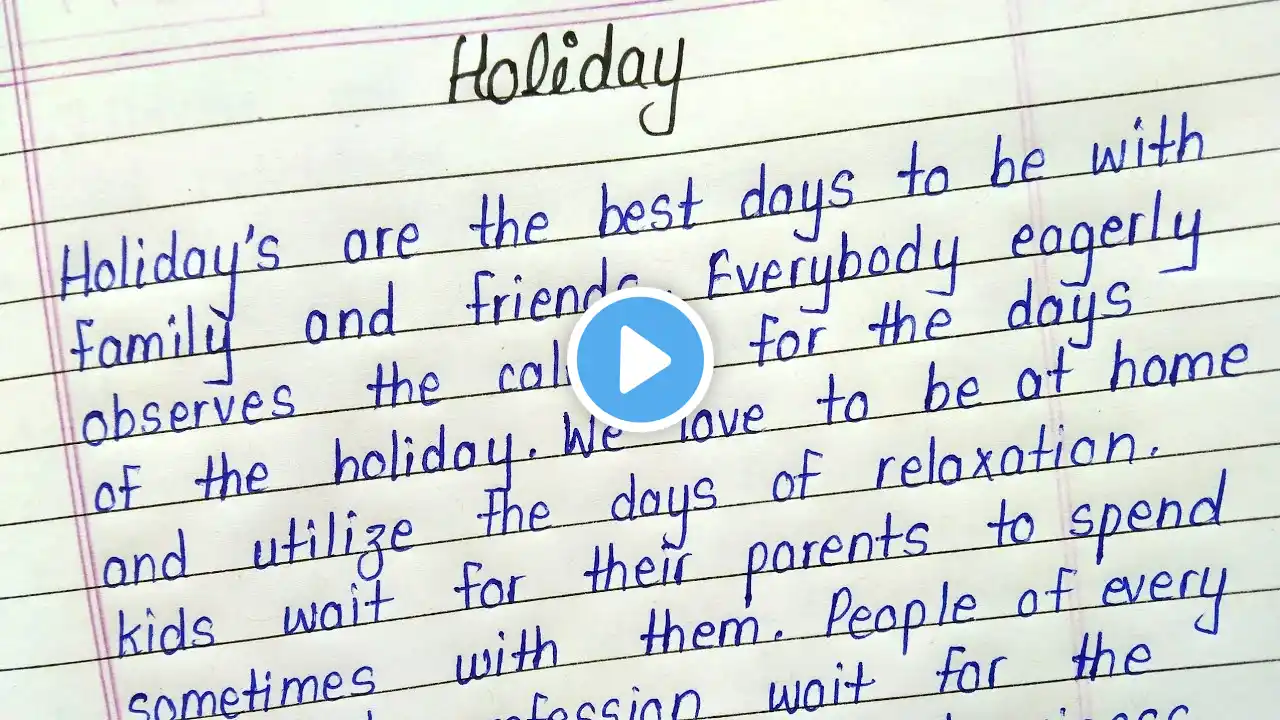 Holiday
Holiday's are the best days to be with
family and friends. Everybody eagerly
observes the for the days
of the holiday. We love to be at home
and utilize the days of relaxation.
kids wait for their parents to spend
sometimes with them. People of every
wait for the